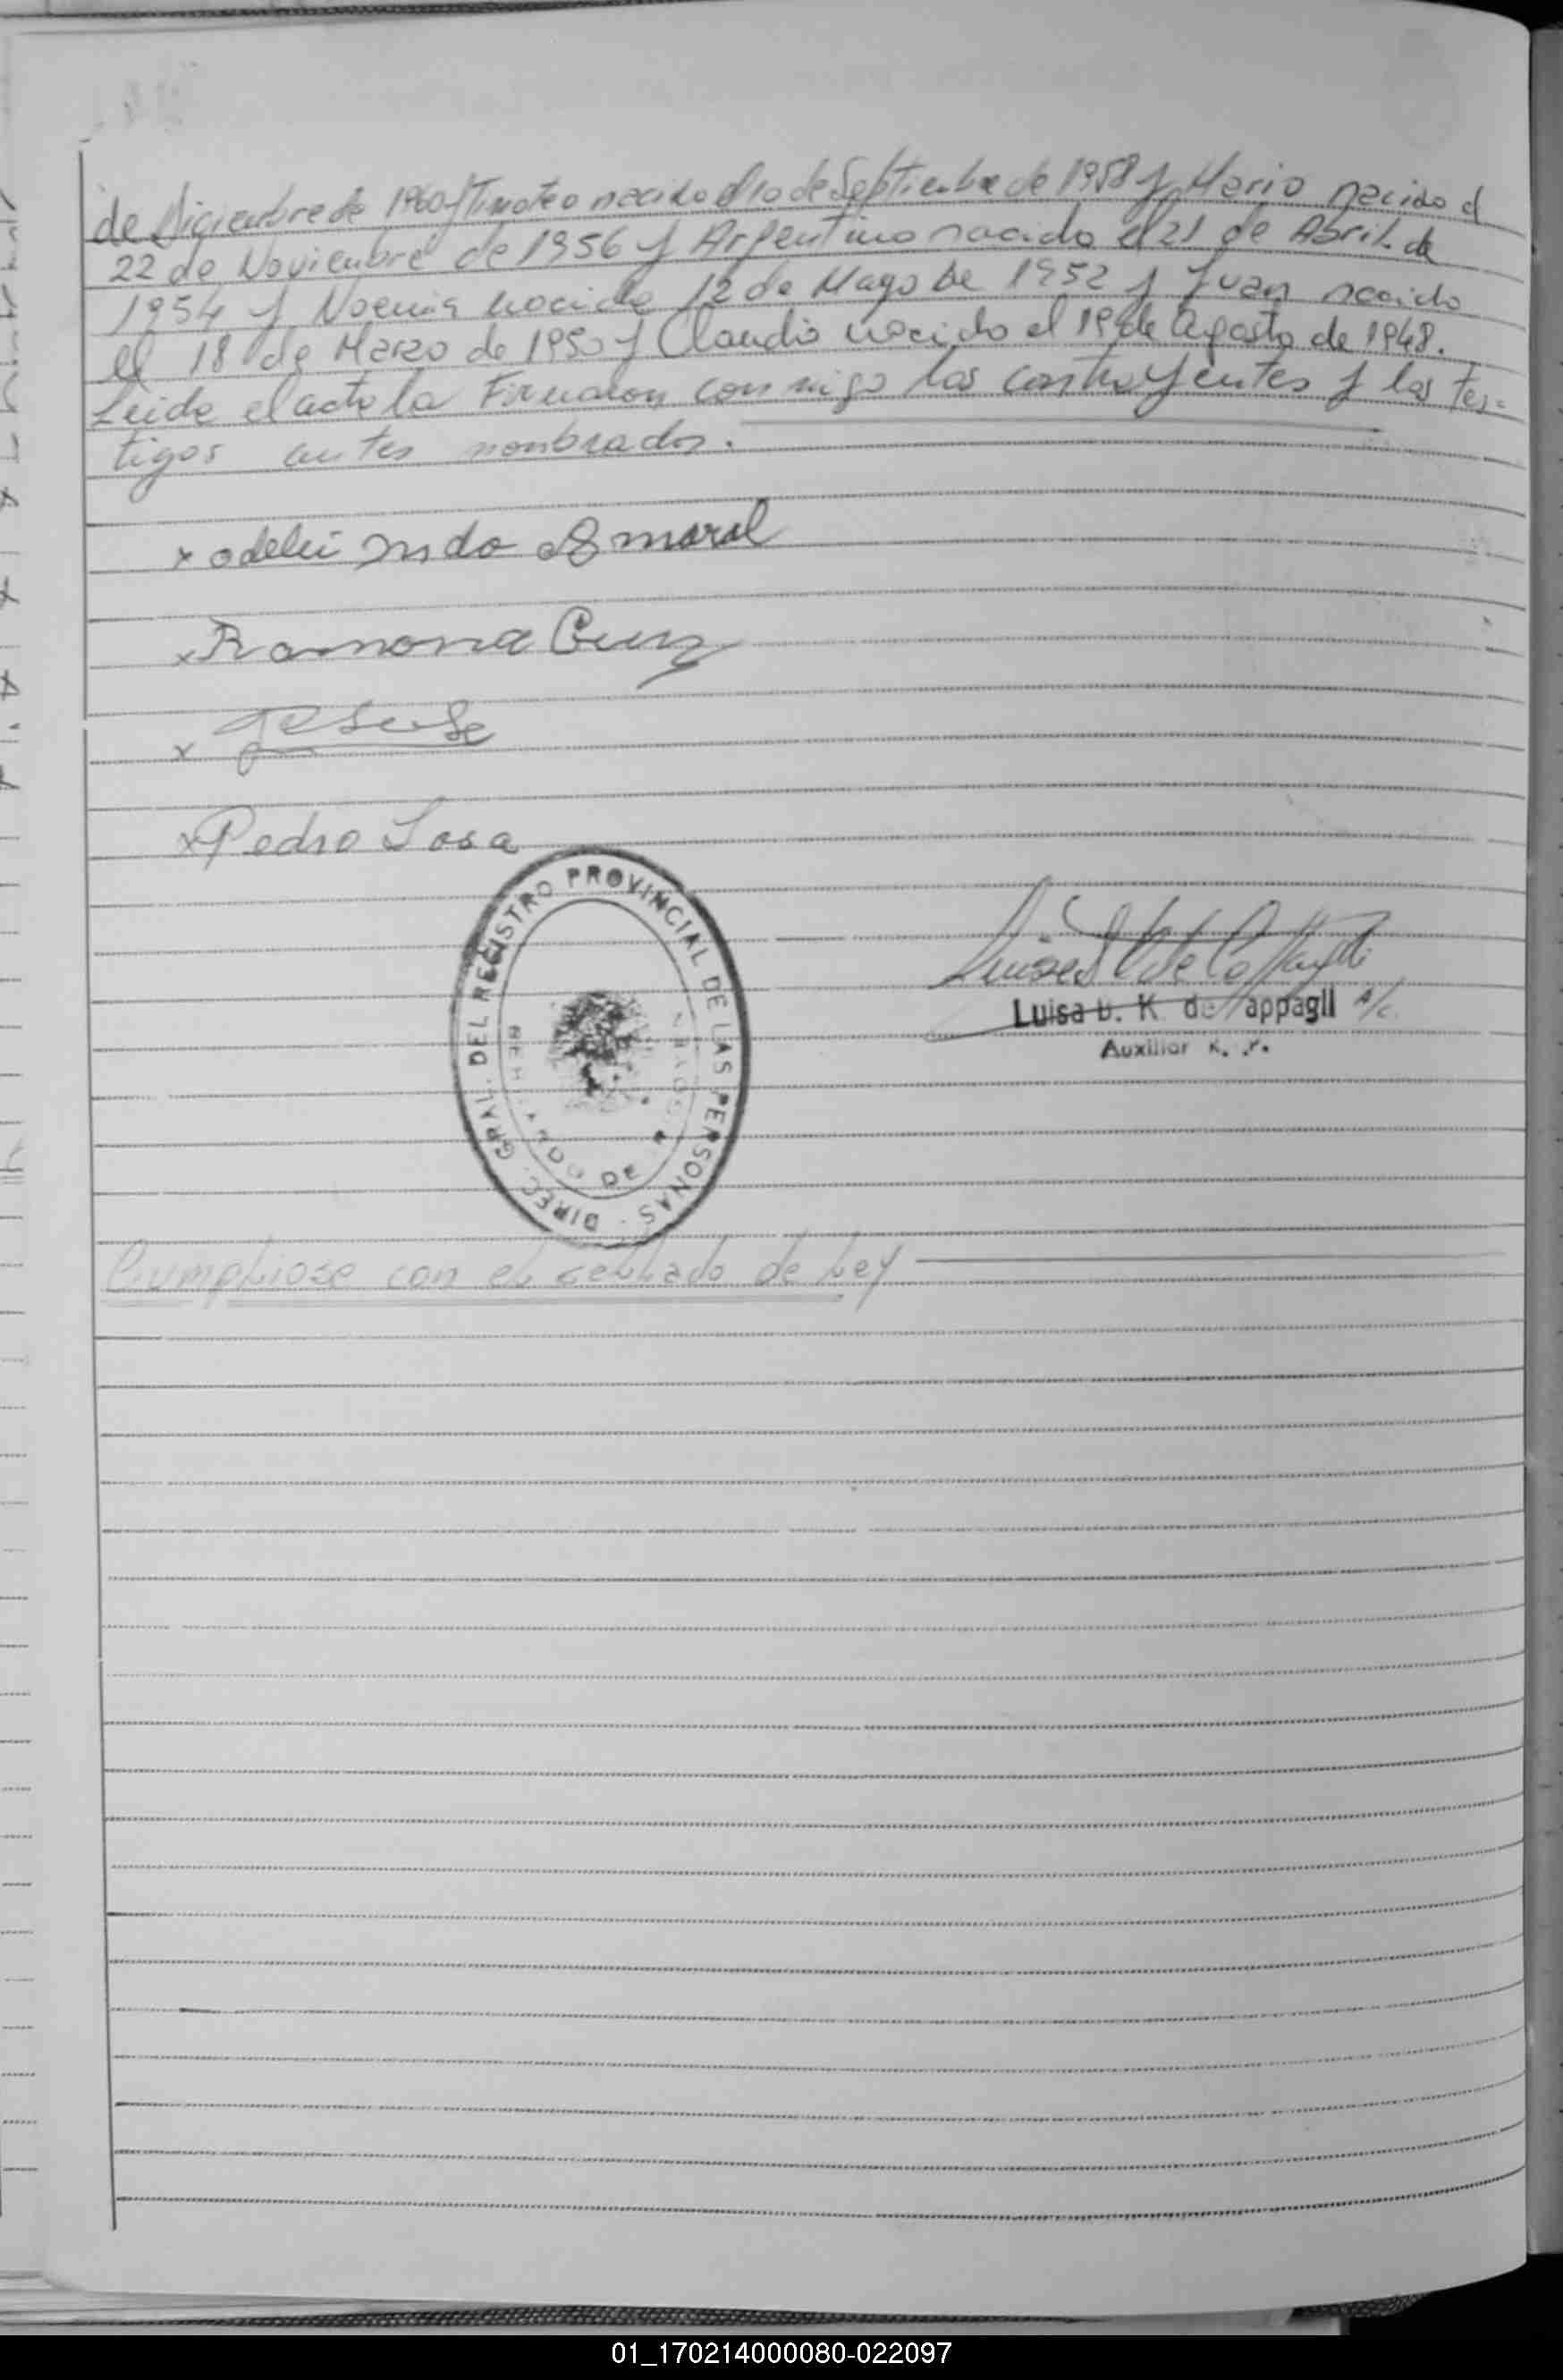 de Diciembre de 1960 y Timoteo nacido el 10 de Septiembre de 1958 y Mario nacido el
22 de Noviembre de 1956 y Argentino nacido el 21 de Abril de
1954 y Noemia nacida 12 de Mayo de 1952 y Juan nacido
el 18 de Marzo de 1950 y Claudio nacido el 19 de Agosto de 1948.
Leida el acta la Firmaron conmigo los contrayentes y los tes=
tigos antes nombrados.
x Amaral
x Ramona Cruz
x
x Pedro Sosa
DIREC. GRAL. DEL REGISTRO PROVINCIAL DE LAS PERSONAS
DE
Luisa K. de appagli A/c.
Auxiliar
Cumpliose con el sellado de Ley
01_170214000080-022097